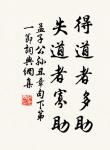 得道者多助
失道者寡助
孟子公孙丑章句下第
一节词典网集